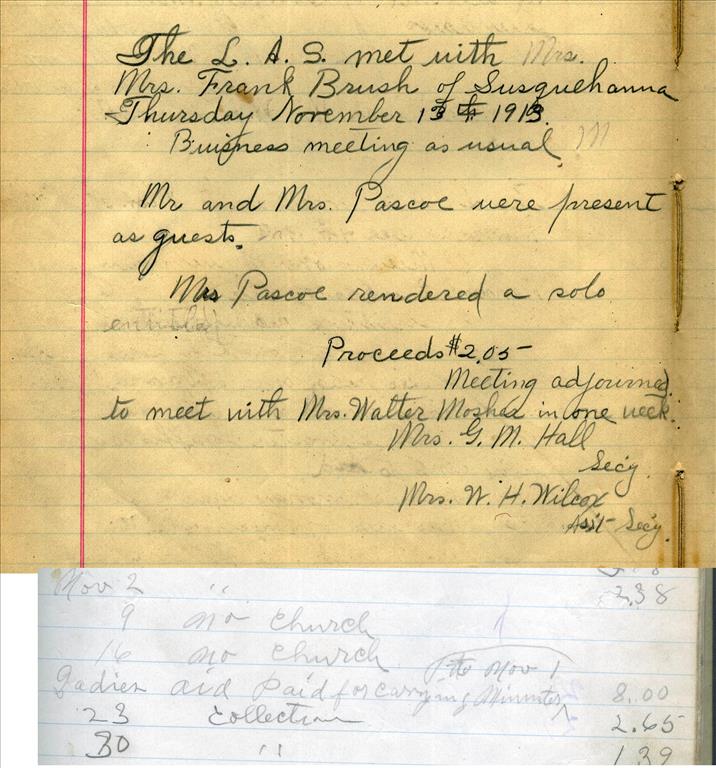 The L. A. S. met with Mrs.
Mrs. Frank Brush of Susquehanna
Thursday November 13th 1913.
Buisness meeting as usual M
Mr and Mrs. Pascoe were present
as guests.
Mrs Pascoe rendered a solo
entitled
Proceeds $2.05
Meeting adjourned
to meet with Mrs. Walter Mosher in one week.
Mrs. G. M. Hall
Sec'y.
Mrs. W. H. Wilcox
Ass't Sec'y.
Nov 2 " 2.38
9 no church
16 no church
to Nov 1
Ladies aid paid for carrying Minister 8.00
23 Collection 2.65
30 " 1.39